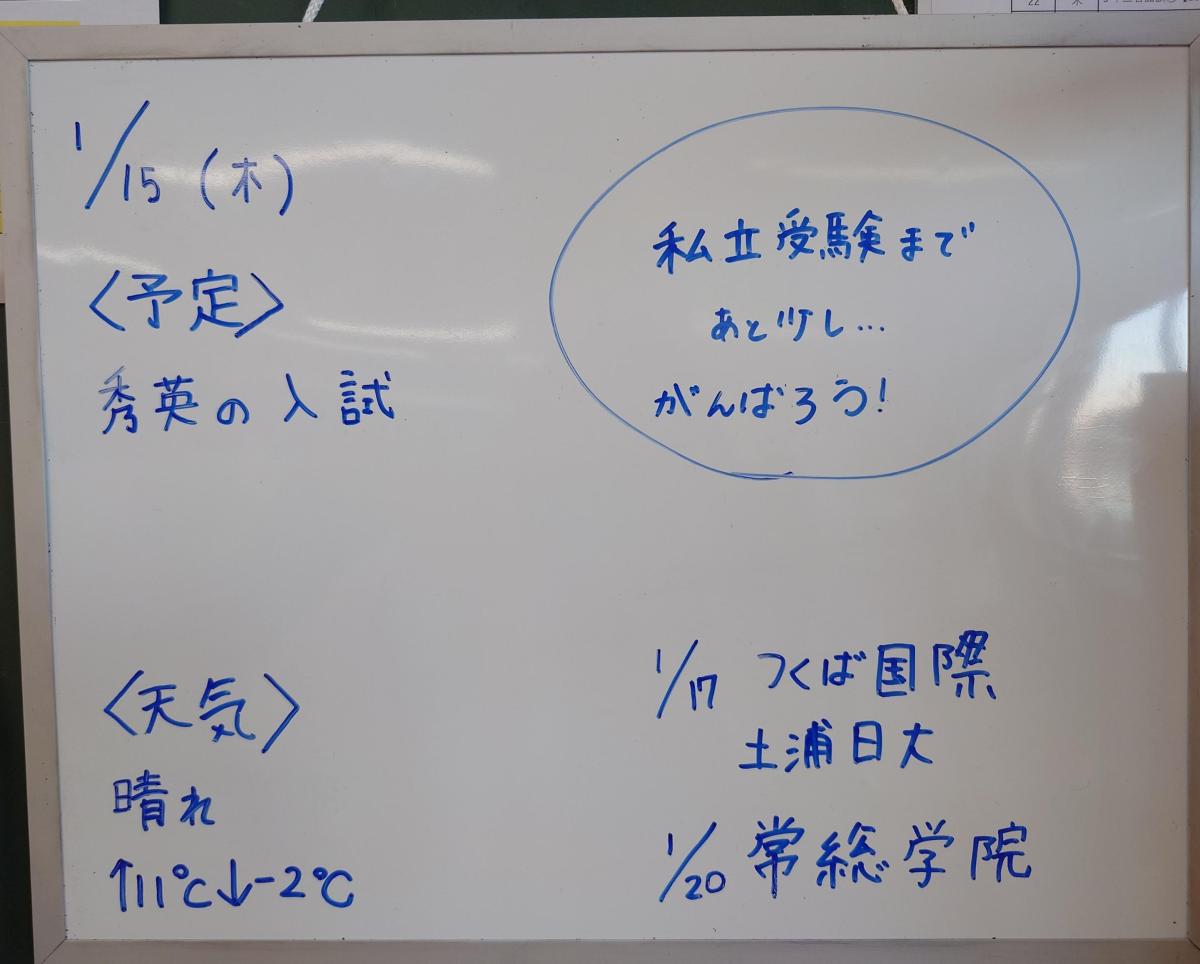 1/15 (木)
〈予定〉
秀英の入試
私立受験まで
あと少し…
がんばろう!
〈天気〉
晴れ
↑11℃↓-2℃
1/17 つくば国際
土浦日大
1/20 常総学院
22 木